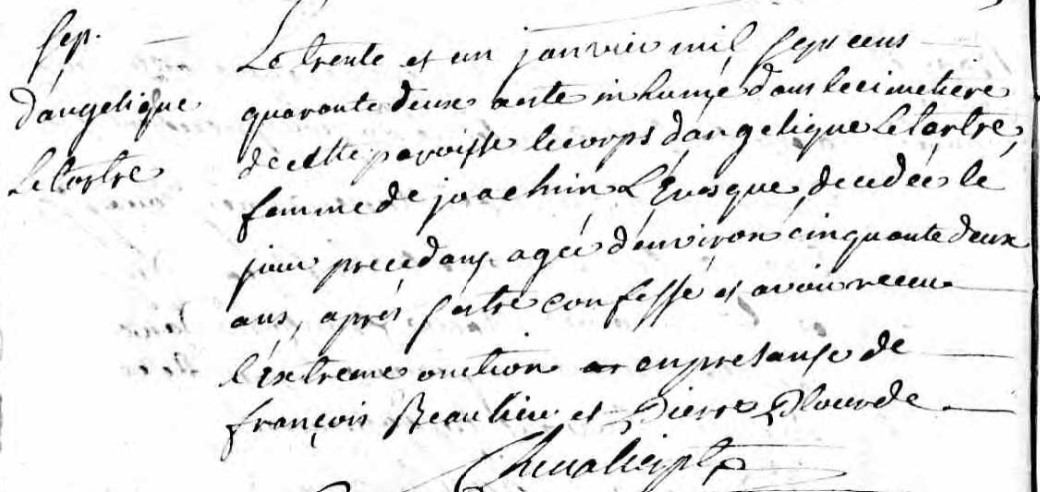 sep.
d'angelique
Letartre
Le trente et un janvier mil sept cens
quarante deux a esté inhumé dans le cimetiere
de cette paroisse le corps d'angelique Letartre,
femme de joachim L'Evesque, decedeé le
jour precedant ageé d'environ cinquante deux
ans, aprés s'estre confessé et avoir receu
l'extreme onction en presanse de
françois Beaulieu et Pierre Plourde
Chevalier ptre